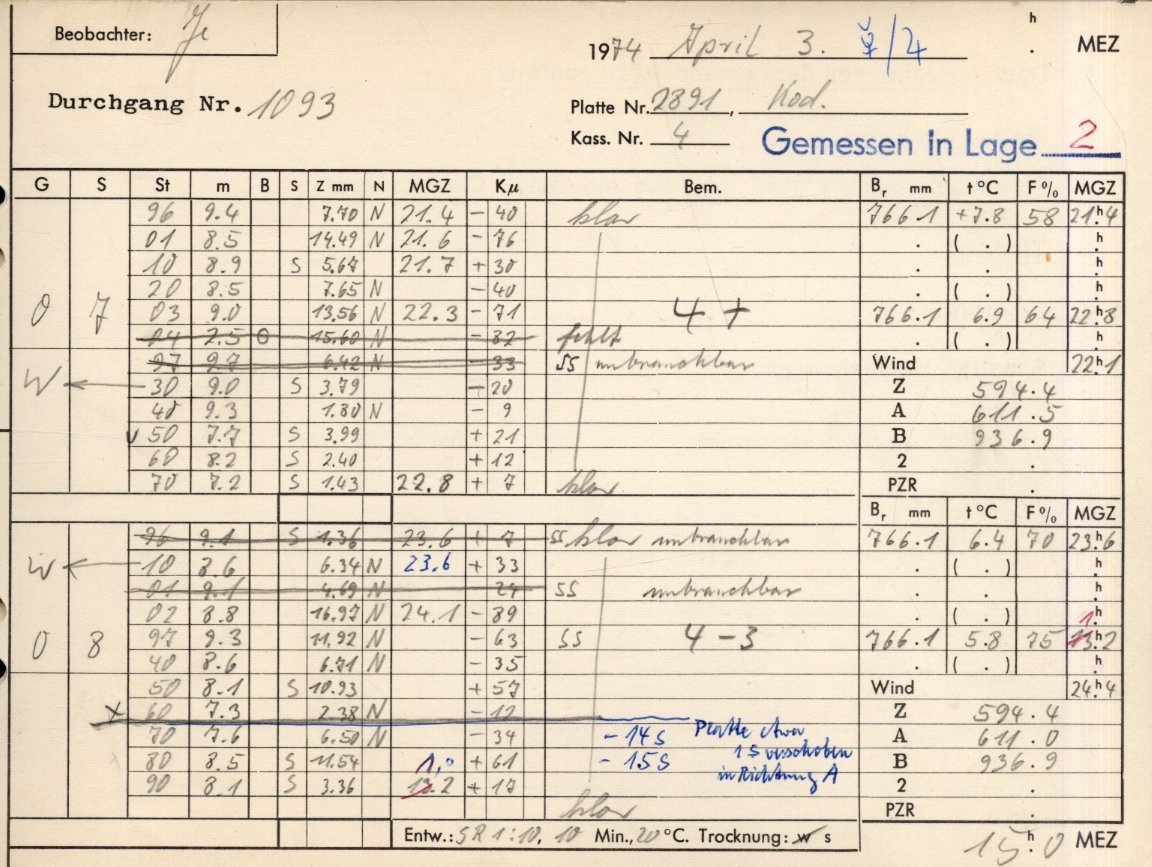 Beobachter: Je
1974 April 3. ☿/4 h . MEZ
Durchgang Nr. 1093
Platte Nr. 2891, Kod.
Kass. Nr. 4
Gemessen in Lage 2
G S St m B S Z mm N MGZ Kμ Bem. Br mm t°C F% MGZ
96 9.4 7.70 N 21.4 - 40 klar 766.1 +7.8 58 21h.4
01 8.5 14.49 N 21.6 - 76 . ( . ) h
10 8.9 S 5.67 21.7 + 30 . . h
20 8.5 7.65 N - 40 . ( . ) h
O 7 03 9.0 13.56 N 22.3 - 71 4+ 766.1 6.9 64 22h.8
04 2.5 0 15.60 N - 32 fehlt . ( . ) h
97 9.7 6.42 N - 33 SS unbrauchbar Wind 22h.1
W 30 9.0 S 3.79 - 20 Z 594.4
40 9.3 1.80 N - 9 A 611.5
v 50 7.7 S 3.99 + 21 B 936.9
60 8.2 S 2.40 + 12 2 .
70 7.2 S 1.43 22.8 + 7 klar PZR .
Br mm t°C F% MGZ
96 9.1 S 1.36 23.6 + 7 SS klar unbrauchbar 766.1 6.4 70 23h.6
W 10 8.6 6.34 N 23.6 + 33 . ( . ) h
01 9.1 4.69 N 24 SS unbrauchbar . . h
02 8.8 16.97 N 24.1 - 89 . ( . ) h
O 8 97 9.3 11.92 N - 63 SS 4-3 766.1 5.8 75 1h.2
40 8.6 6.71 N - 35 . ( . ) h
50 8.1 S 10.93 + 57 Wind 24h.4
x 60 7.3 2.38 N - 12 Z 594.4
70 7.6 6.50 N - 34 - 14s Platte etwa A 611.0
80 8.5 S 11.54 1.0 + 61 - 15s 1s verschoben B 936.9
90 8.1 S 3.36 13.2 + 17 in Richtung A 2 .
klar PZR .
Entw.: SR 1:10, 10 Min., 20°C. Trocknung: w s 15h.0 MEZ